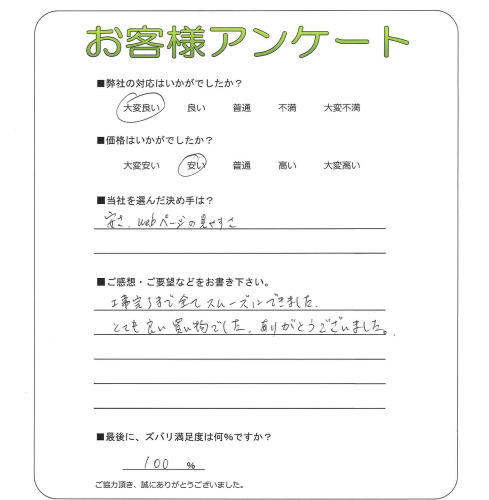 お客様アンケート
■弊社の対応はいかがでしたか？
大変良い 良い 普通 不満 大変不満
■価格はいかがでしたか？
大変安い 安い 普通 高い 大変高い
■当社を選んだ決め手は？
安さ、webページの見やすさ
■ご感想・ご要望などをお書き下さい。
工事完了まで全てスムーズにできました。
とても良い買い物でした。ありがとうございました。
■最後に、ズバリ満足度は何％ですか？
100 ％
ご協力頂き、誠にありがとうございました。